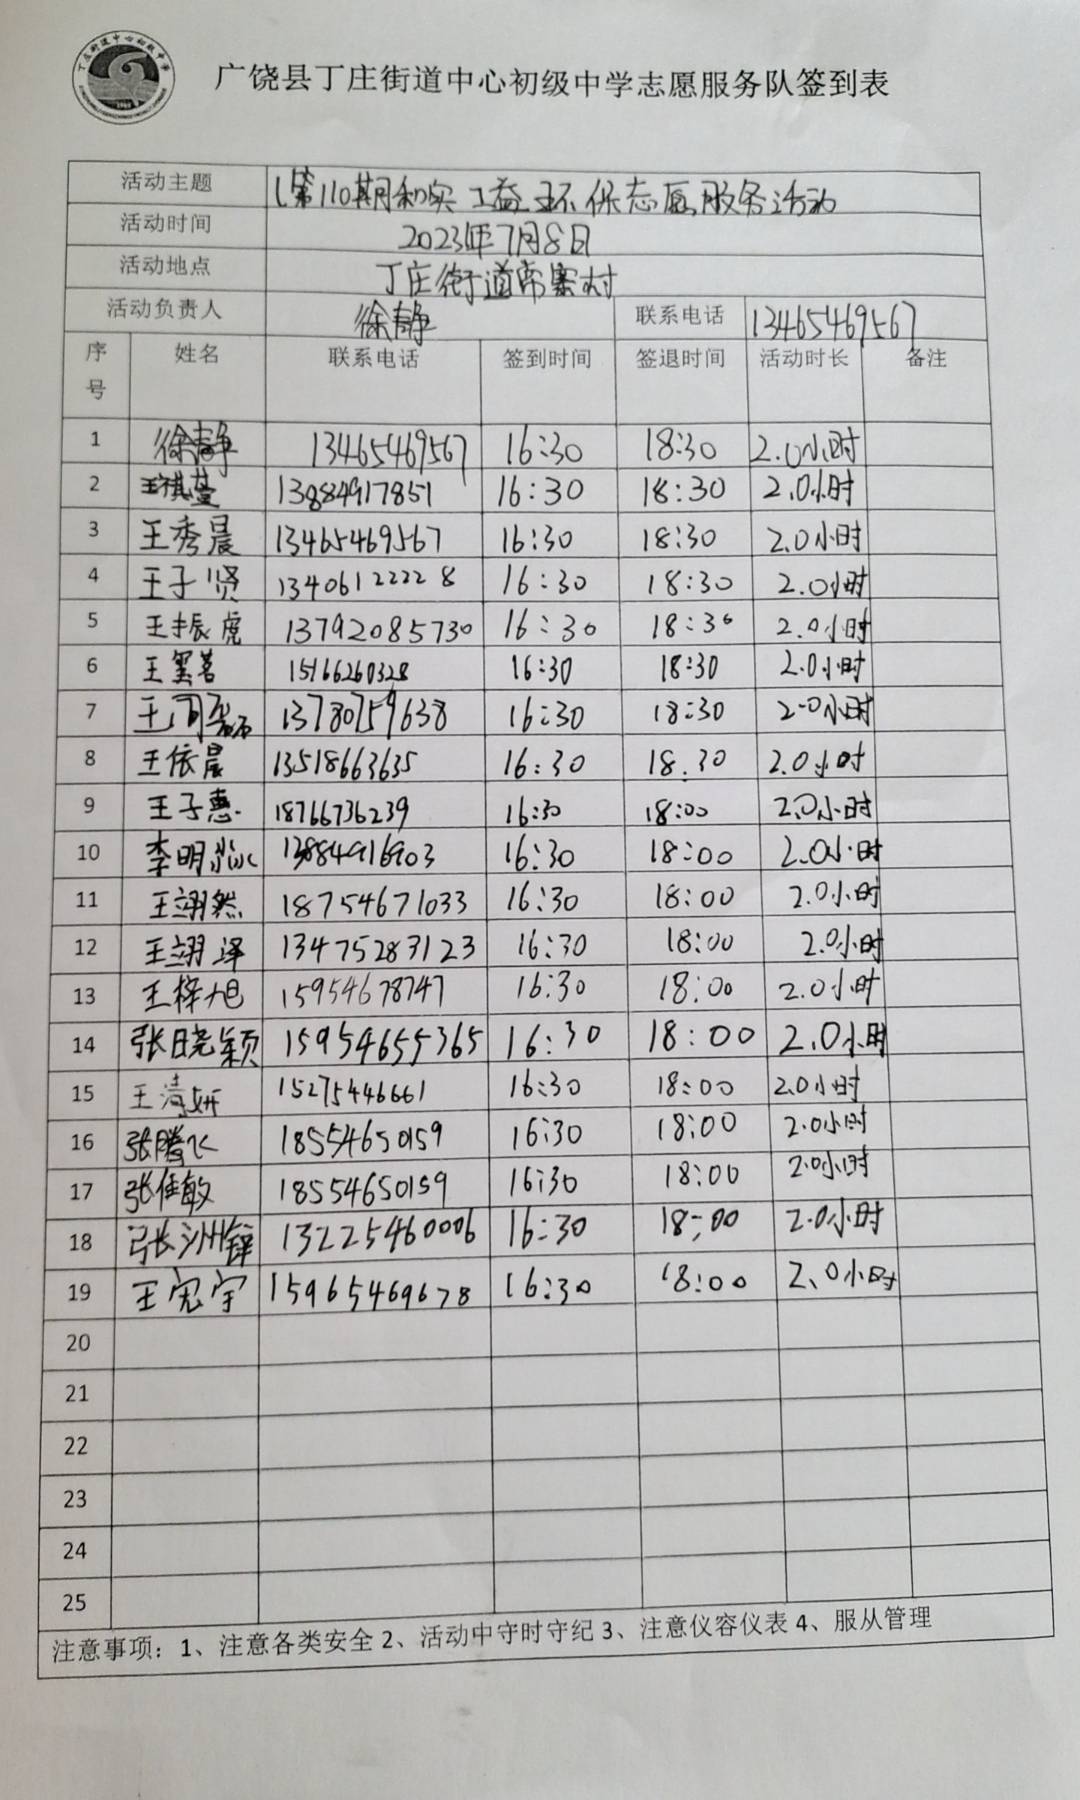 丁庄街道中心初级中学
广饶县丁庄街道中心初级中学志愿服务队签到表
活动主题 (第110期和实 工益 环保志愿服务活动
活动时间 2023年7月8日
活动地点 丁庄街道常寨村
活动负责人 徐静 联系电话 13465469567
序号 姓名 联系电话 签到时间 签退时间 活动时长 备注
1 徐静 13465469567 16:30 18:30 2.0小时
2 王祺蔓 13884917851 16:30 18:30 2.0小时
3 王秀晨 13465469567 16:30 18:30 2.0小时
4 王子贤 13406122228 16:30 18:30 2.0小时
5 王振虎 13792085730 16:30 18:30 2.0小时
6 15166260328 16:30 18:30 2.0小时
7 13780759638 16:30 18:30 2.0小时
8 王依晨 13518663635 16:30 18.30 2.0小时
9 王子惠 18766736239 16:30 18:00 2.0小时
10 李明 13884916903 16:30 18:00 2.0小时
11 王翊然 18754671033 16:30 18:00 2.0小时
12 王翊泽 13475283123 16:30 18:00 2.0小时
13 王梓旭 15954678747 16:30 18:00 2.0小时
14 张晓颖 15954655365 16:30 18:00 2.0小时
15 王清妍 15275446661 16:30 18:00 2.0小时
16 张腾飞 18554650159 16:30 18:00 2.0小时
17 张佳敏 18554650159 16:30 18:00 2.0小时
18 张洲锋 13225460006 16:30 18:00 2.0小时
19 王宪宇 15965469678 16:30 18:00 2.0小时
20
21
22
23
24
25
注意事项：1、注意各类安全 2、活动中守时守纪 3、注意仪容仪表 4、服从管理